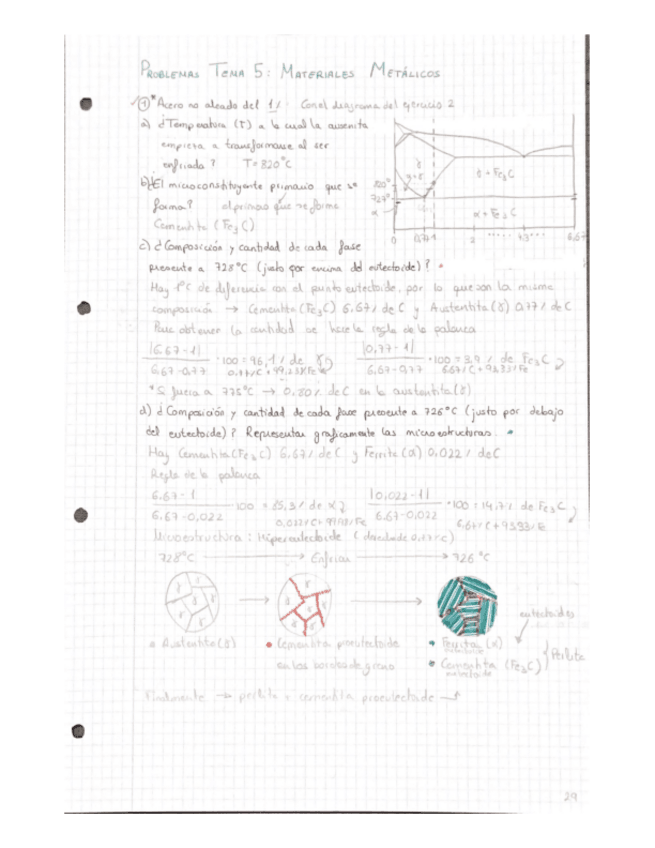 PROBLEMAS TEMA 5: MATERIALES METÁLICOS
① * Acero no aleado del 1%. Con el diagrama del ejercicio 2
a) ¿Temperatura (T) a la cual la austenita
empieza a transformarse al ser
enfriada? T = 820°C
b) ¿El microconstituyente primario que se
forma? el primero que se forma
Cementita (Fe3C)
γ
γ + Fe3C
727°
α
α + Fe3C
0 0,77 1 2 6,67
c) ¿Composición y cantidad de cada fase
presente a 728°C (justo por encima del eutectoide)?
Hay 1°C de diferencia con el punto eutectoide, por lo que son la misma
composición → Cementita (Fe3C) 6,67% de C y Austentita (γ) 0,77% de C
Para obtener la cantidad se hace la regla de la palanca
|6,67-1| / 6,67-0,77 · 100 = 96,1% de γ
0,77%C + 99,23%Fe
|0,77-1| / 6,67-0,77 · 100 = 3,9% de Fe3C
6,67%C + 93,33%Fe
* Si fuera a 775°C → 0,80% de C en la austentita (γ)
d) ¿Composición y cantidad de cada fase presente a 726°C (justo por debajo
del eutectoide)? Representar graficamente las microestructuras.
Hay Cementita (Fe3C) 6,67% de C y Ferrita (α) 0,022% de C
Regla de la palanca
6,67-1 / 6,67-0,022 · 100 = 85,3% de α
|0,022-1| / 6,67-0,022 · 100 = 14,7% de Fe3C
Microestructura: Hipereutectoide
728°C → Enfriar → 726°C
γ γ γ
Austentita (γ)
Cementita proeutectoide
en los bordes de grano
eutectoides
Ferrita (α)
Cementita (Fe3C)
Perlita
Finalmente → perlita + cementita proeutectoide
29